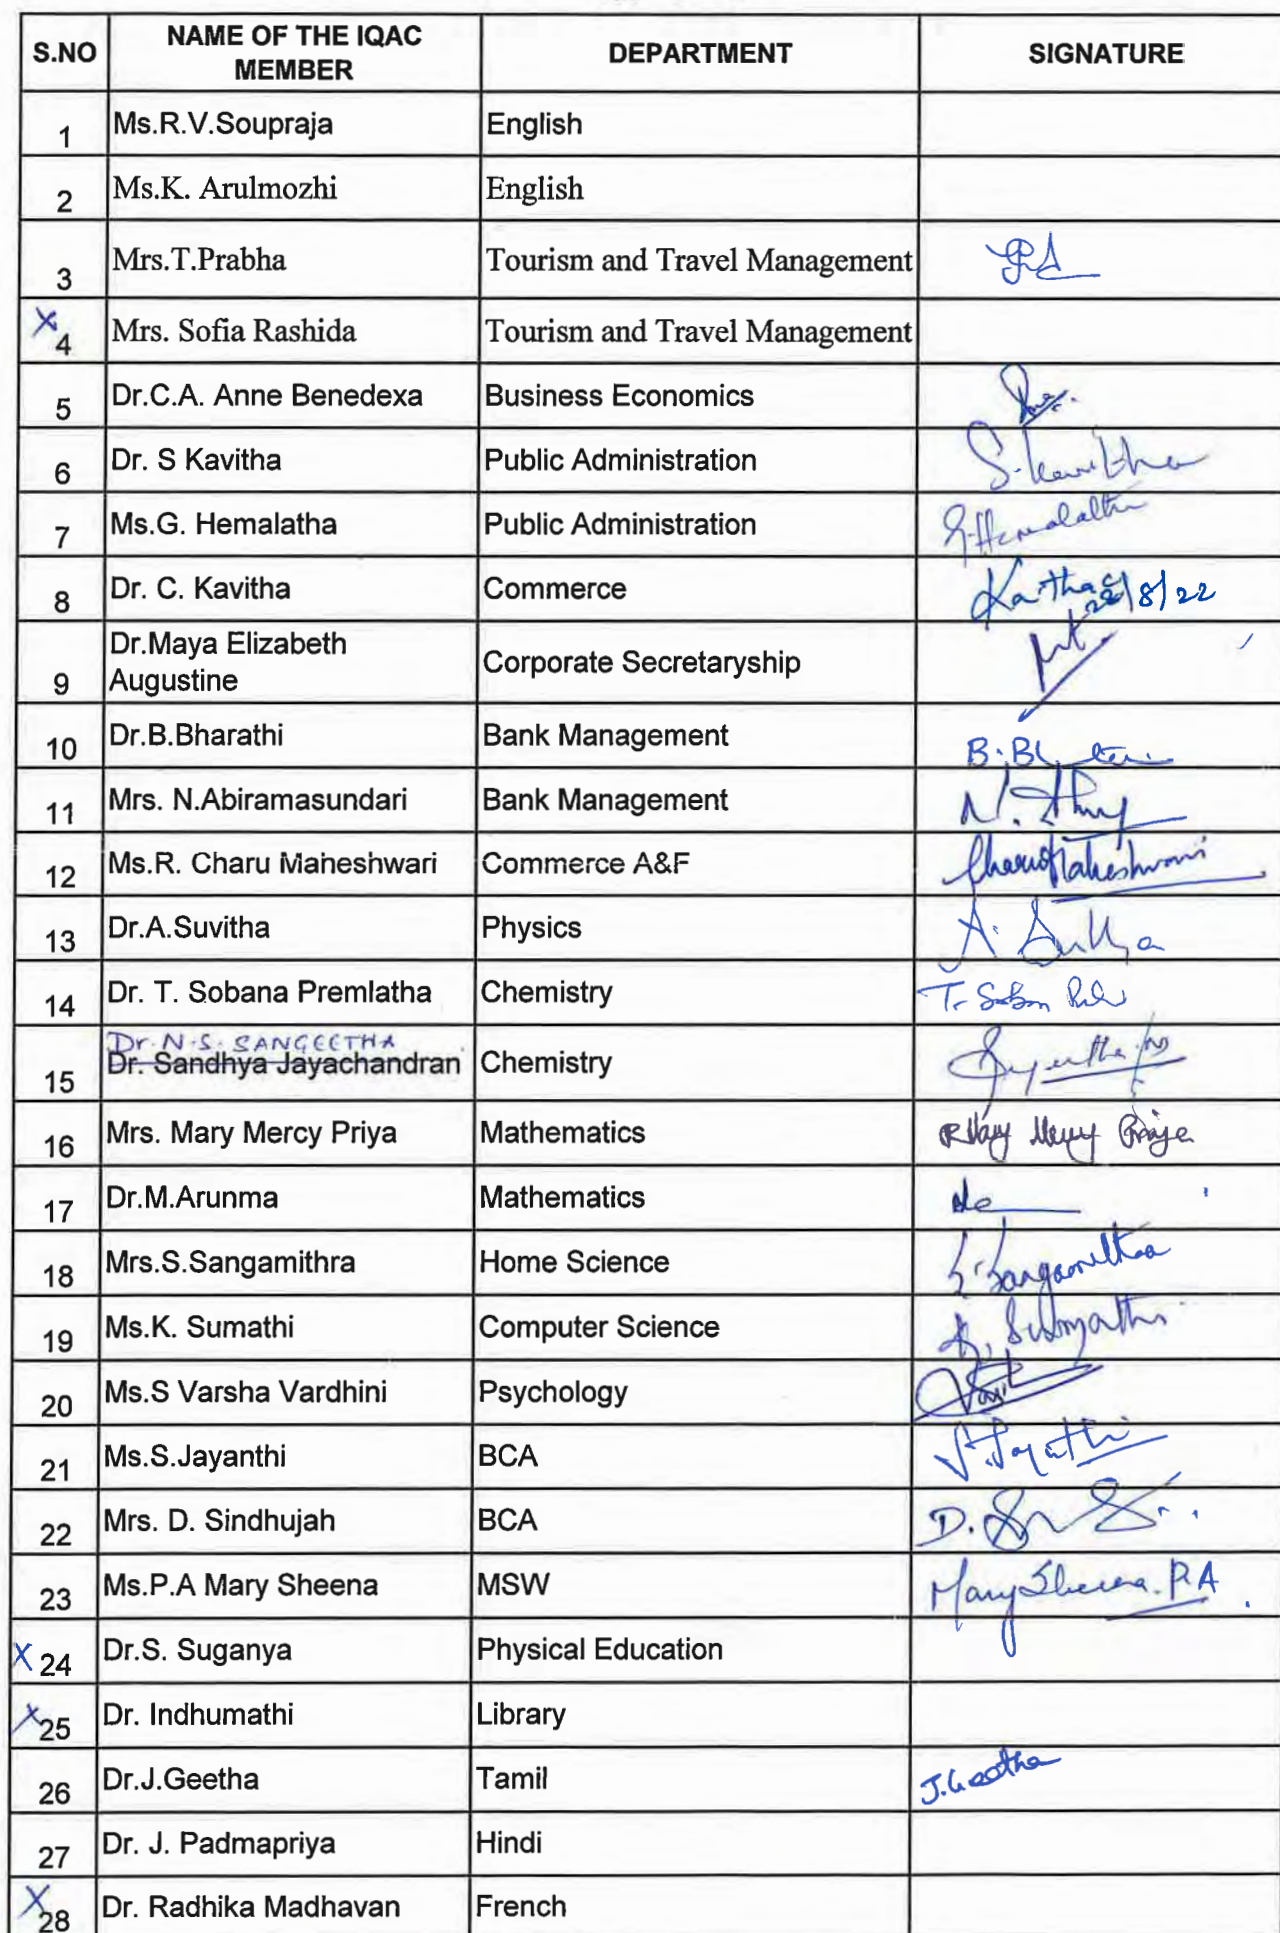 S.NO NAME OF THE IQAC MEMBER DEPARTMENT SIGNATURE
1 Ms.R.V.Soupraja English
2 Ms.K. Arulmozhi English
3 Mrs.T.Prabha Tourism and Travel Management
X 4 Mrs. Sofia Rashida Tourism and Travel Management
5 Dr.C.A. Anne Benedexa Business Economics
6 Dr. S Kavitha Public Administration S. Kavitha
7 Ms.G. Hemalatha Public Administration G. Hemalatha
8 Dr. C. Kavitha Commerce 8/22
9 Dr.Maya Elizabeth Augustine Corporate Secretaryship
10 Dr.B.Bharathi Bank Management B.
11 Mrs. N.Abiramasundari Bank Management N.
12 Ms.R. Charu Maheshwari Commerce A&F Charu Maheshwari
13 Dr.A.Suvitha Physics A.
14 Dr. T. Sobana Premlatha Chemistry T.
Dr. N.S. SANGEETHA
15 Dr. Sandhya Jayachandran Chemistry
16 Mrs. Mary Mercy Priya Mathematics Mary Mercy Priya
17 Dr.M.Arunma Mathematics
18 Mrs.S.Sangamithra Home Science S. Sangamithraa
19 Ms.K. Sumathi Computer Science K. Sumathi
20 Ms.S Varsha Vardhini Psychology
21 Ms.S.Jayanthi BCA S. Jayanthi
22 Mrs. D. Sindhujah BCA D.
23 Ms.P.A Mary Sheena MSW Mary Sheena. P.A
X 24 Dr.S. Suganya Physical Education
X 25 Dr. Indhumathi Library
26 Dr.J.Geetha Tamil J. Geetha
27 Dr. J. Padmapriya Hindi
X 28 Dr. Radhika Madhavan French